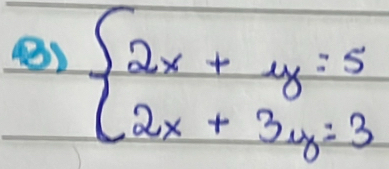 B) { 2x + y = 5
2x + 3y = 3